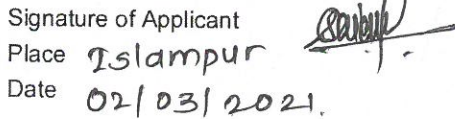 Signature of Applicant
Place Islampur
Date 02/03/2021.